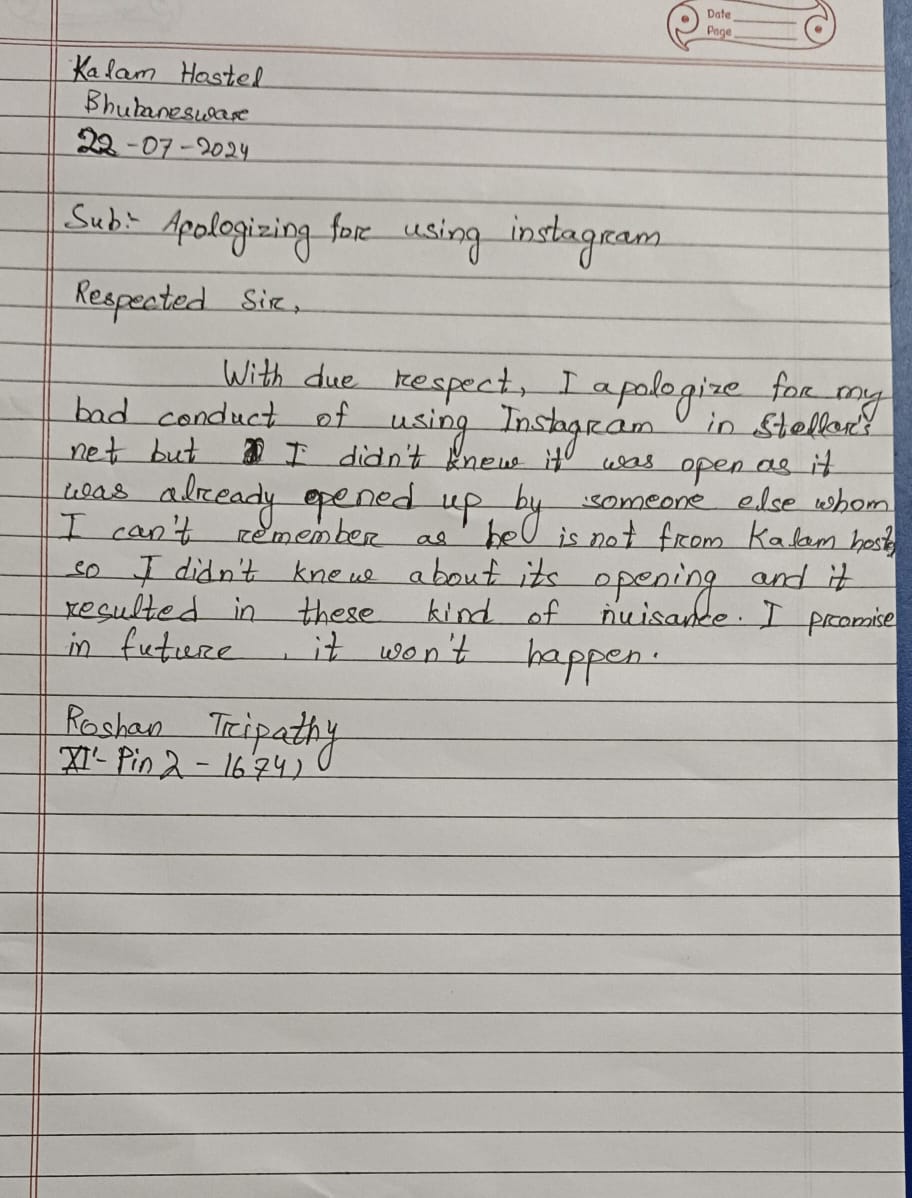 Date
Page
Kalam Hostel
Bhubaneswar
22-07-2024
Sub:- Apologizing for using instagram
Respected Sir,
With due respect, I apologize for my
bad conduct of using Instagram in Stellar's
net but I didn't knew it was open as it
was already opened up by someone else whom
I can't remember as he is not from Kalam hostel
so I didn't knew about its opening and it
resulted in these kind of nuisance. I promise
in future, it won't happen.
Roshan Tripathy